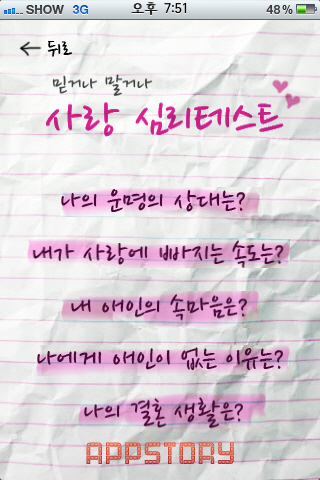 SHOW 3G 오후 7:51 48%
← 뒤로
믿거나 말거나
사랑 심리테스트
나의 운명의 상대는?
내가 사랑에 빠지는 속도는?
내 애인의 속마음은?
나에게 애인이 없는 이유는?
나의 결혼 생활은?
APPSTORY